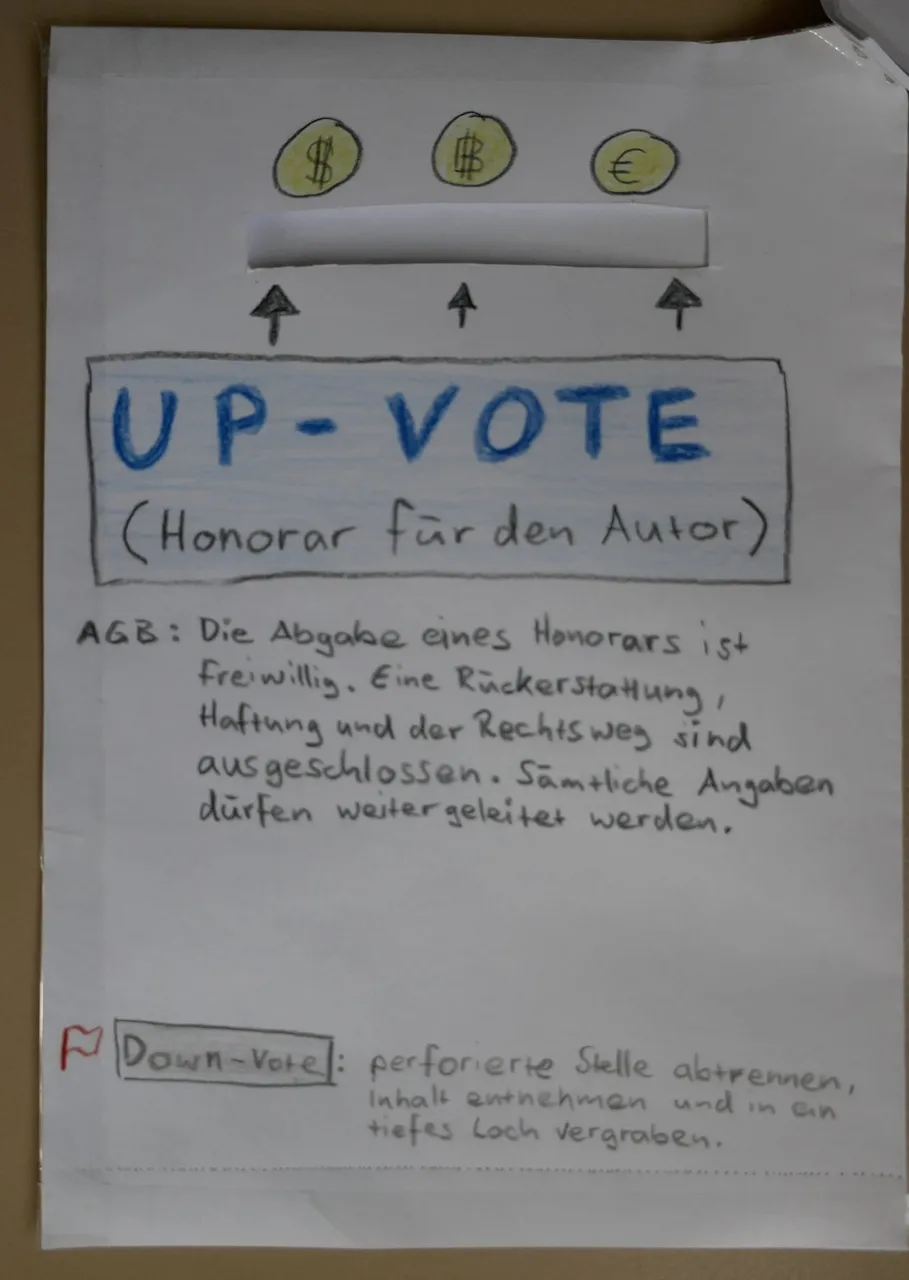 $ ₿ €
UP-VOTE
(Honorar für den Autor)
AGB: Die Abgabe eines Honorars ist
freiwillig. Eine Rückerstattung,
Haftung und der Rechtsweg sind
ausgeschlossen. Sämtliche Angaben
dürfen weitergeleitet werden.
Down-Vote: perforierte Stelle abtrennen,
Inhalt entnehmen und in ein
tiefes Loch vergraben.